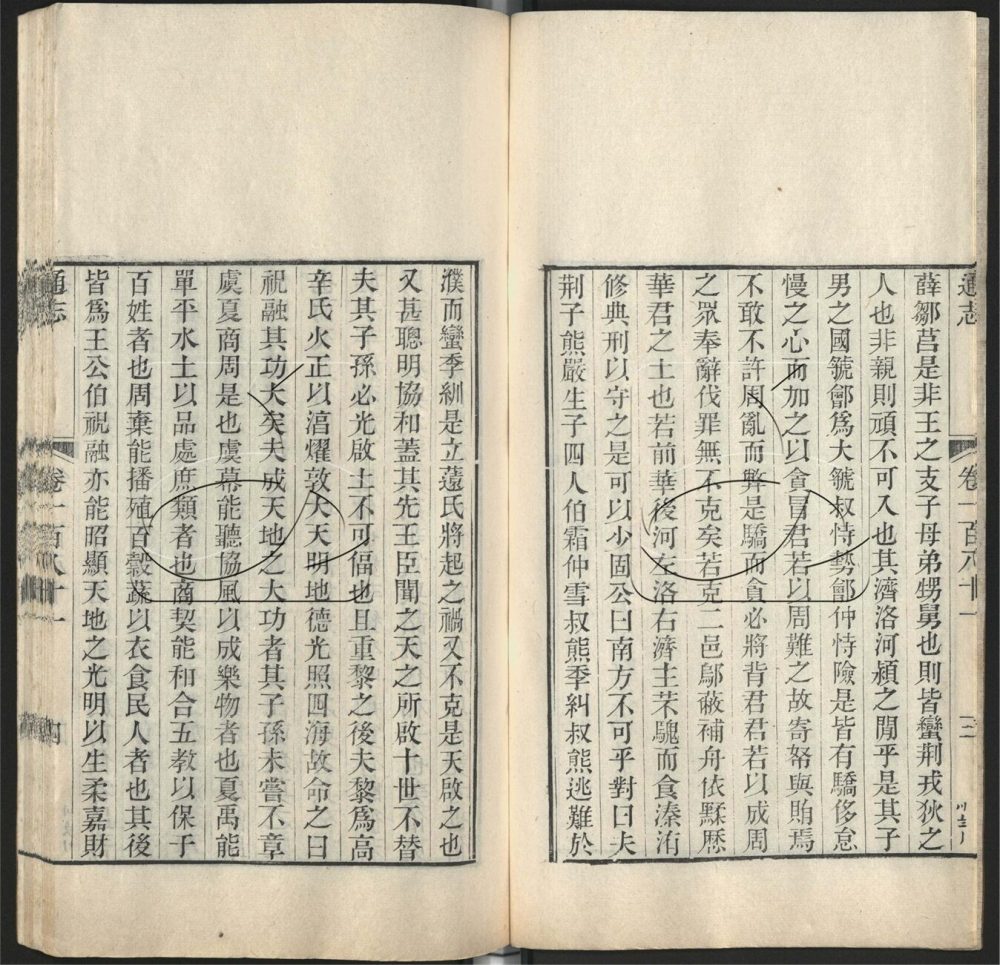 通志
卷一百八十一
三
薛鄒莒是非王之支子母弟甥舅也則皆蠻荆戎狄之
人也非親則頑不可入也其濟洛河潁之閒乎是其子
男之國虢鄶爲大虢叔恃勢鄶仲恃險是皆有驕侈怠
慢之心而加之以貪冒君若以周難之故寄帑與賄焉
不敢不許周亂而弊是驕而貪必將背君君若以成周
之眾奉辭伐罪無不克矣若克二邑鄔蔽補舟依黩歷
華君之土也若前華後河左洛右濟主芣騩而食溱洧
修典刑以守之是可以少固公曰南方不可乎對曰夫
荆子熊嚴生子四人伯霜仲雪叔熊季紃叔熊逃難於
濮而蠻季紃是立薳氏將起之禍又不克是天啟之也
又甚聰明協和蓋其先王臣聞之天之所啟十世不替
夫其子孫必光啟土不可偪也且重黎之後夫黎爲高
辛氏火正以淳燿敦大天明地德光照四海故命之曰
祝融其功大矣夫成天地之大功者其子孫未嘗不章
虞夏商周是也虞幕能聽協風以成樂物者也夏禹能
單平水土以品處庶類者也商契能和合五教以保于
百姓者也周棄能播殖百穀蔬以衣食民人者也其後
皆爲王公伯祝融亦能昭顯天地之光明以生柔嘉財
通志
卷一百八十一
四